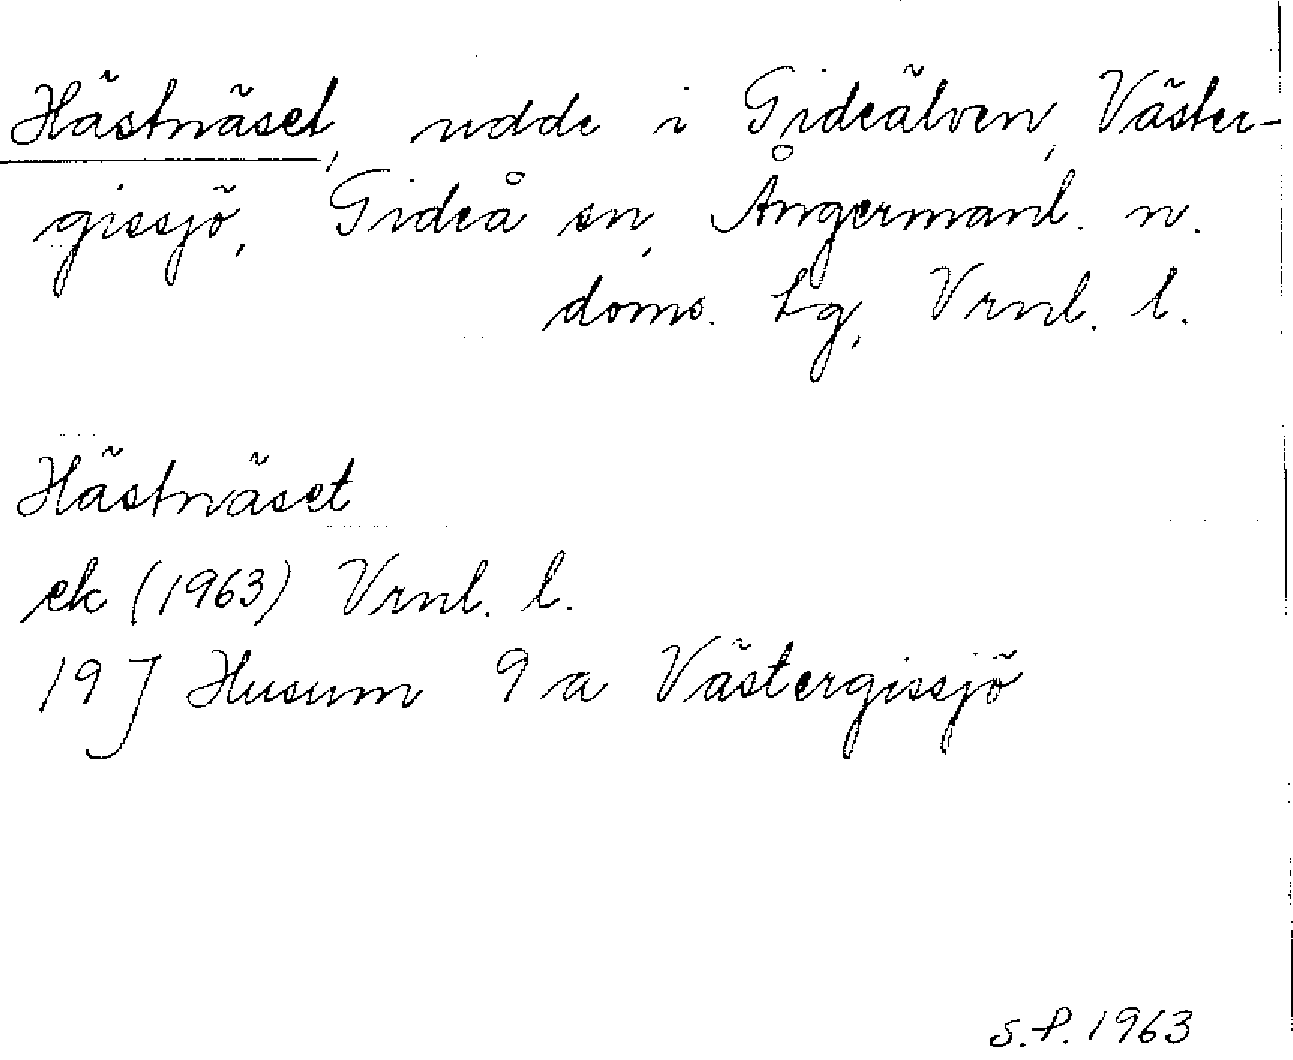 Hästnäset, udde i Gideälven, Väster-
gissjö, Gideå sn, Ångermanl. n.
doms. Lg, Vrnl. l.
Hästnäset
ek (1963) Vrnl. l.
19 J Husum 9 a Västergissjö
S.P. 1963